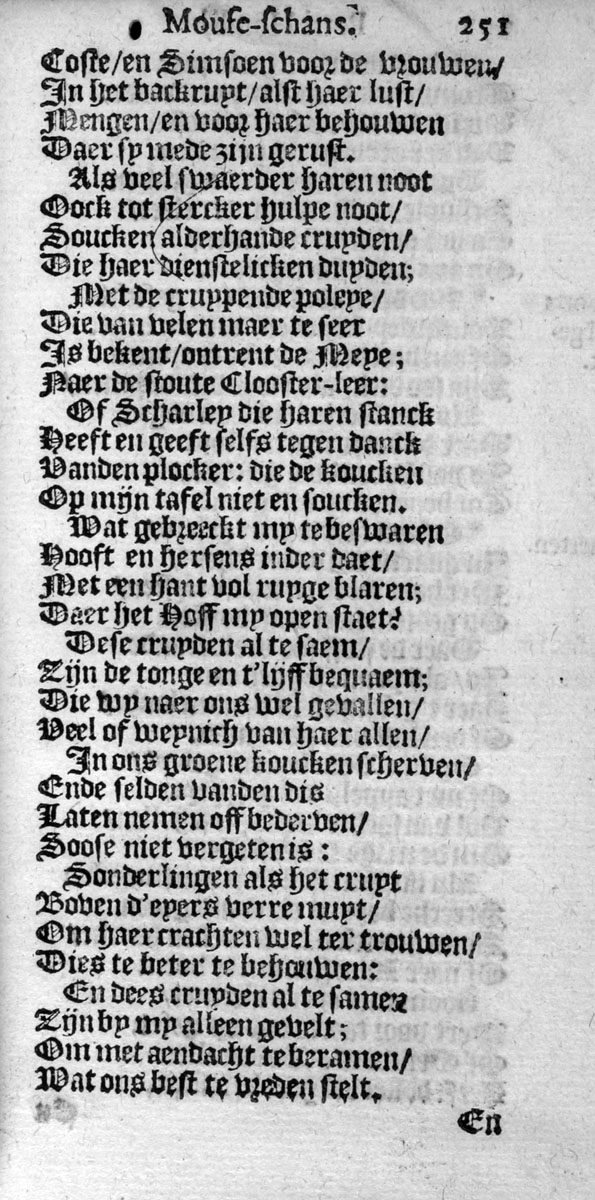 Moufe-schans. 251
Coste/en Simsoen voor de vrouwen/
In het backrupt/alst haer lust/
Mengen/en voor haer behouwen
Daer sy mede zijn gerust.
Als veel swaerder haren noot
Oock tot stercker hulpe noot/
Soucken alderhande cruyden/
Die haer dienstelicken duyden;
Met de cruppende poleye/
Die van velen maer te seer
Is bekent/ontrent de Meye;
Naer de stoute Clooster-leer:
Of Scharley die haren stanck
Heeft en geeft selfs tegen danck
Vanden plocker: die de koucken
Op mijn tafel niet en soucken.
Wat gebreeckt my te beswaren
Hooft en hersens inder daet/
Met een hant vol ruyge blaren;
Daer het Hoff my open staet?
Dese cruyden al te saem/
Zijn de tonge en t'lijff bequaem;
Die wy naer ons wel gevallen/
Veel of weynich van haer allen/
In ons groene koucken scherven/
Ende selden vanden dis
Laten nemen off bederven/
Soose niet vergeten is:
Sonderlingen als het cruyt
Boven d'eyers verre muyt/
Om haer crachten wel ter trouwen/
Dies te beter te behouwen:
En dees cruyden al te samen
Zijn by my alleen gevelt;
Om met aendacht te beramen/
Wat ons best te vreden stelt.
En